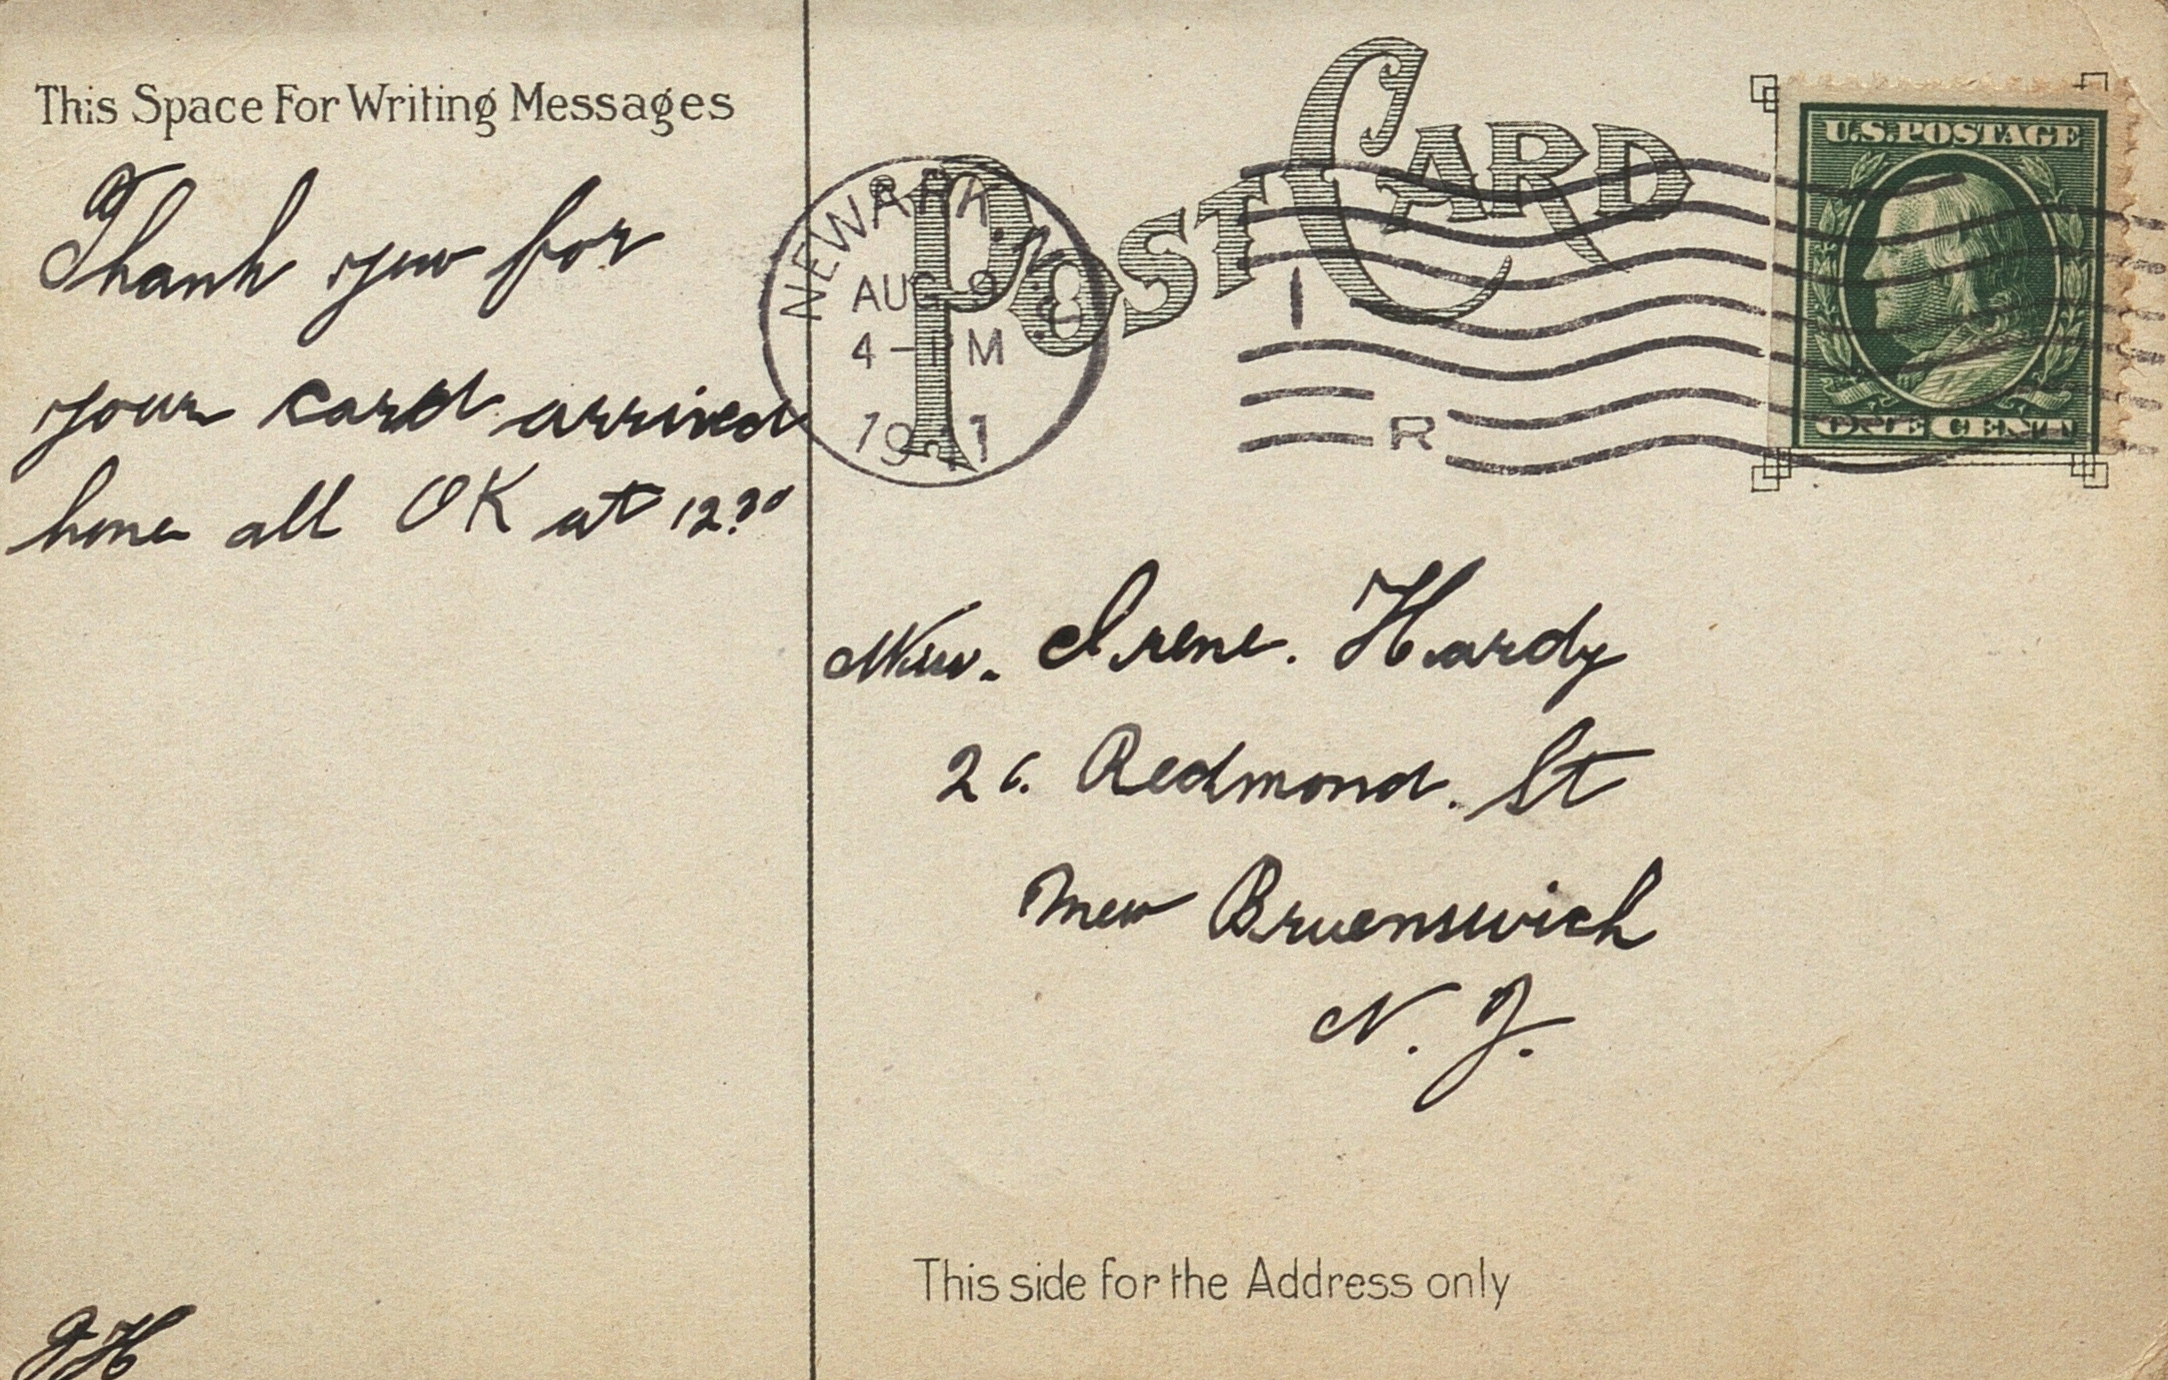 This Space For Writing Messages
Thank you for
your card arrived
home all OK at 12³⁰
JH
POST CARD
NEWARK, N.J.
AUG 9
4-PM
1911
1
R
U.S. POSTAGE
ONE CENT
Miss. Irene. Hardy
26. Redmond. St
New Bruenswick
N. J.
This side for the Address only